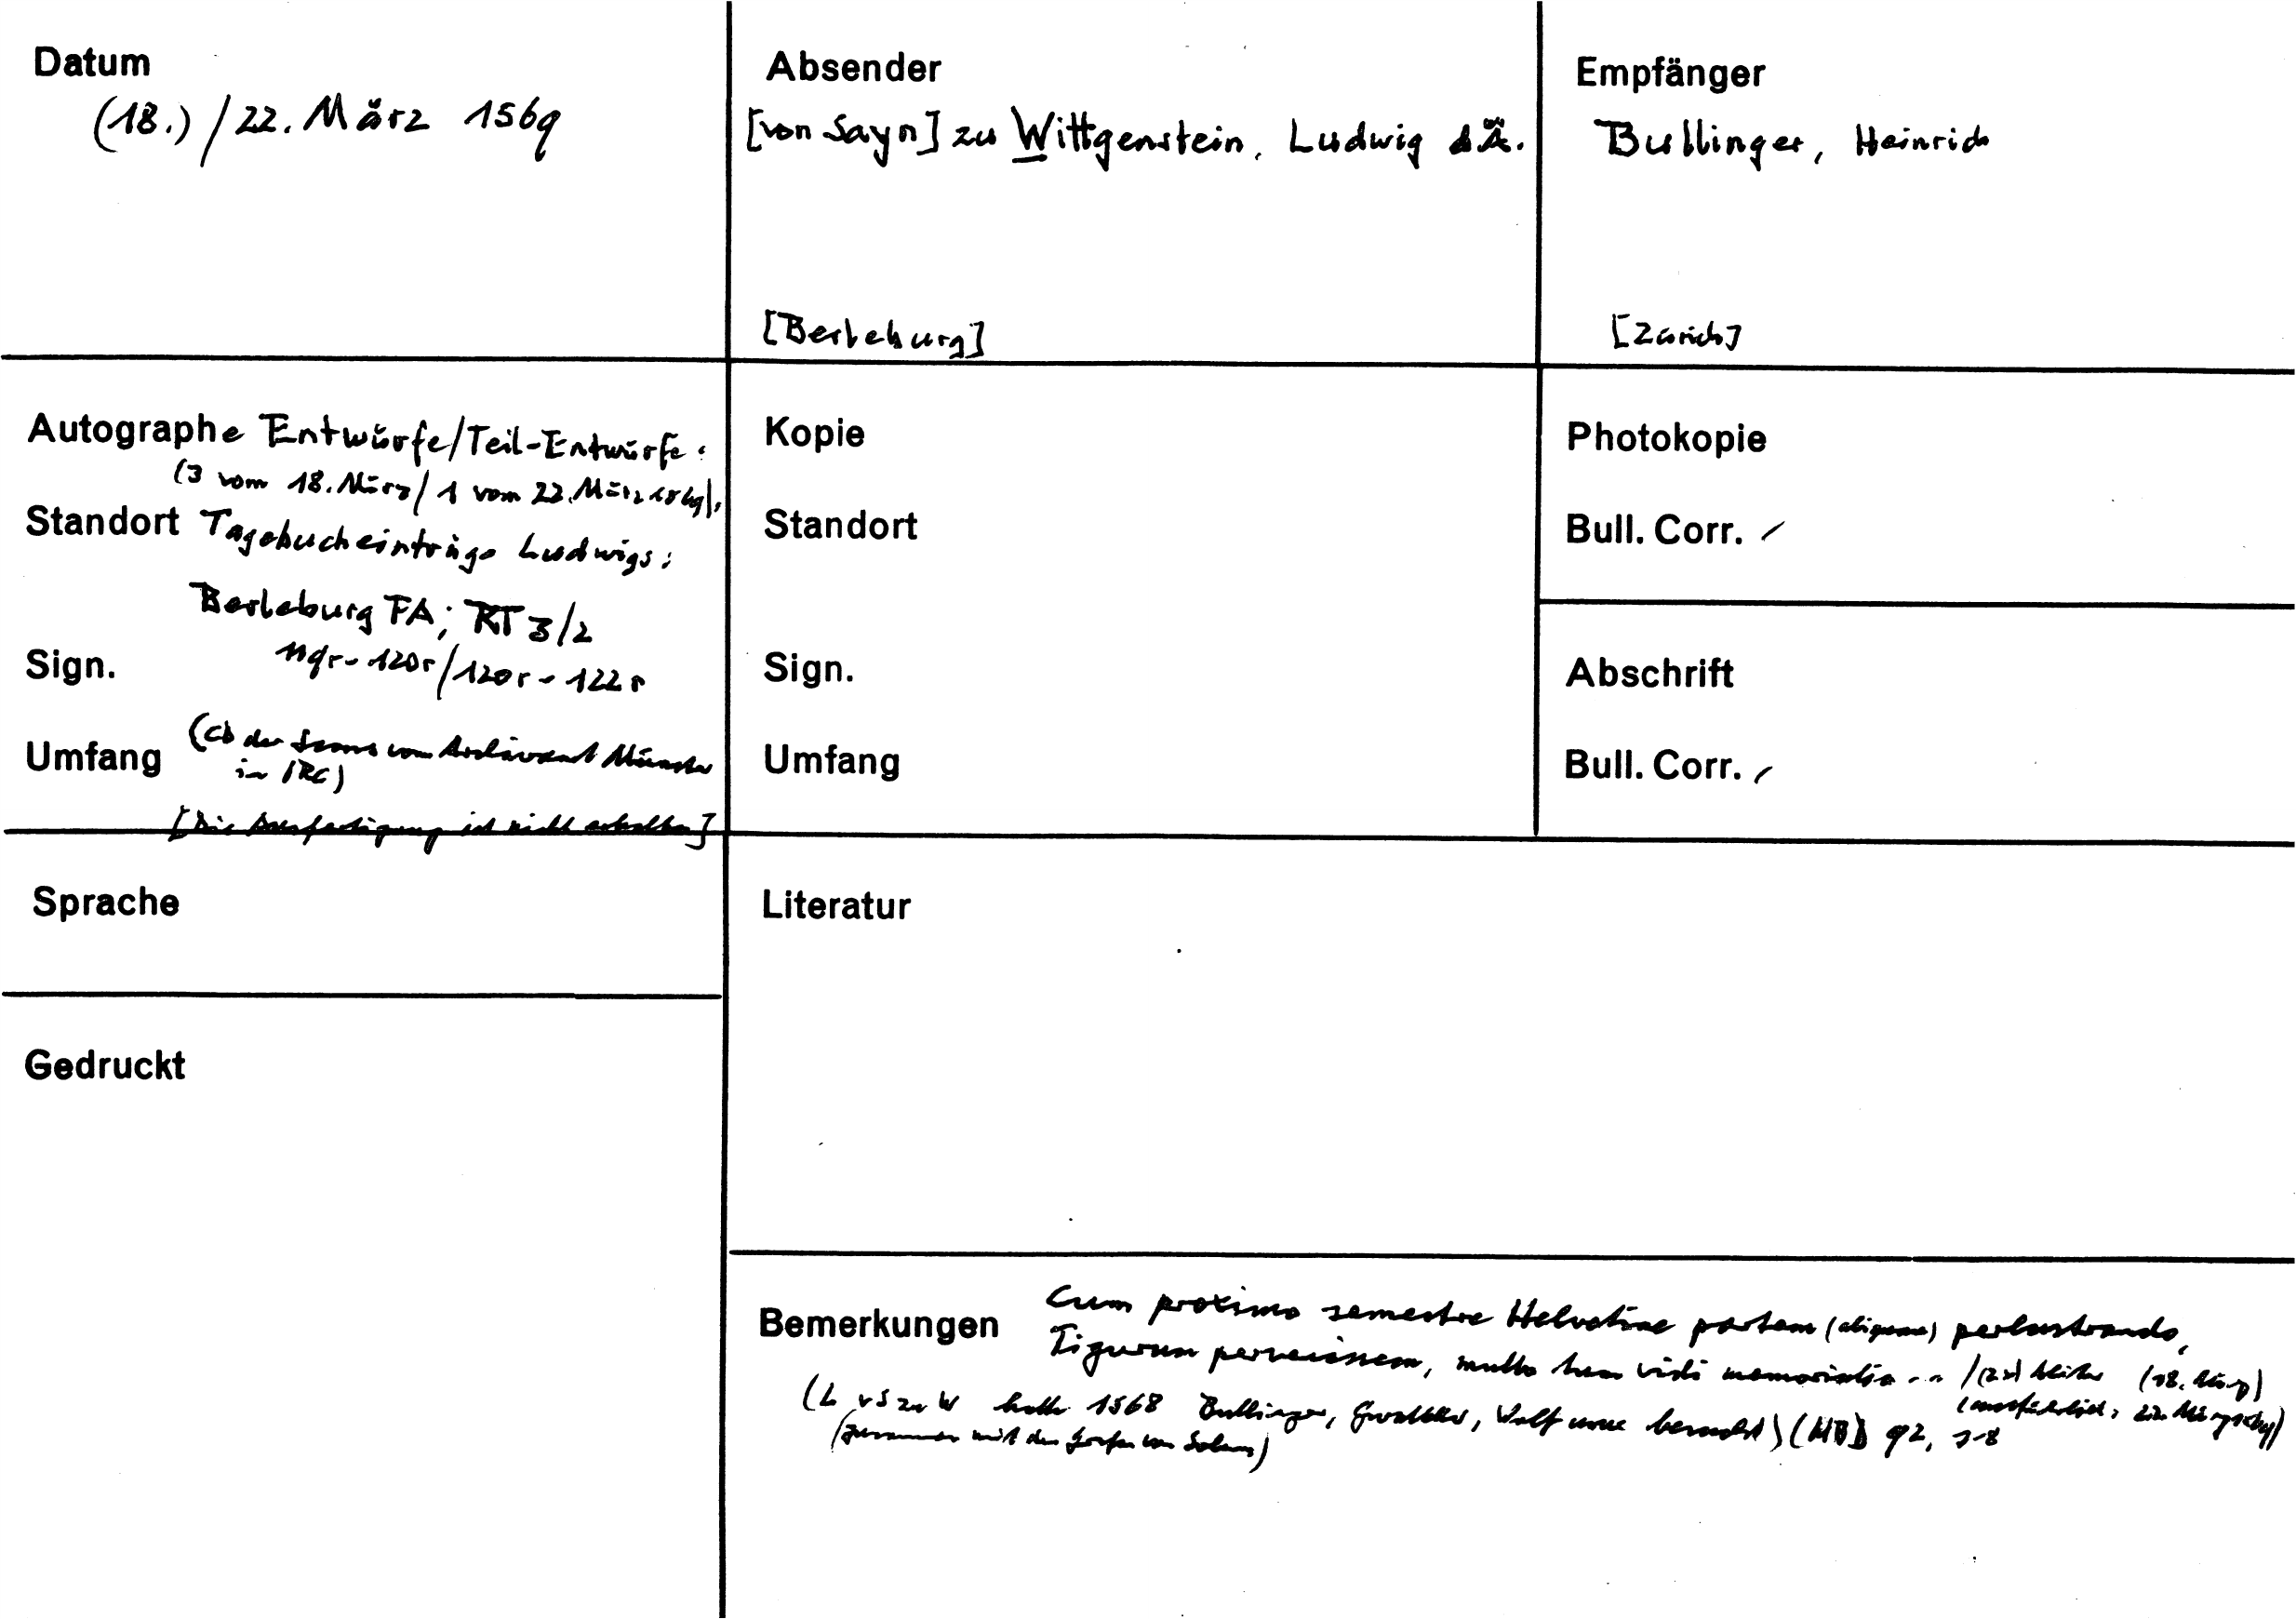 Datum
(18.) / 22. März 1569
Absender
[von Sayn] zu Wittgenstein, Ludwig d.Ä.
[Berleburg]
Empfänger
Bullinger, Heinrich
[Zürich]
Autographe Entwürfe/Teil-Entwürfe:
(3 vom 18. März / 1 vom 22. März 1569),
Standort Tagebucheinträge Ludwigs:
Berleburg FA; RT 3/2
Sign. 119r-120r/120r-122r
Umfang (CD der Scans vom Archivamt Münster
in IRG)
[Die Ausfertigung ist nicht erhalten]
Kopie
Standort
Sign.
Umfang
Photokopie
Bull. Corr. /
Abschrift
Bull. Corr. /
Sprache
Gedruckt
Literatur
Bemerkungen Cum proximo semestre Helvetiae partem (aliquam) perlustrando,
Tigurum pervenissem, multa tum vidi memorabilia ... / (18. März)
(ausführlich: 22. März 1569)
(L vS zu W hatte 1568 Bullinger, Gwalther, Wolf usw. besucht) (HBD 92, 7-8
(zusammen mit den Grafen von Solms)